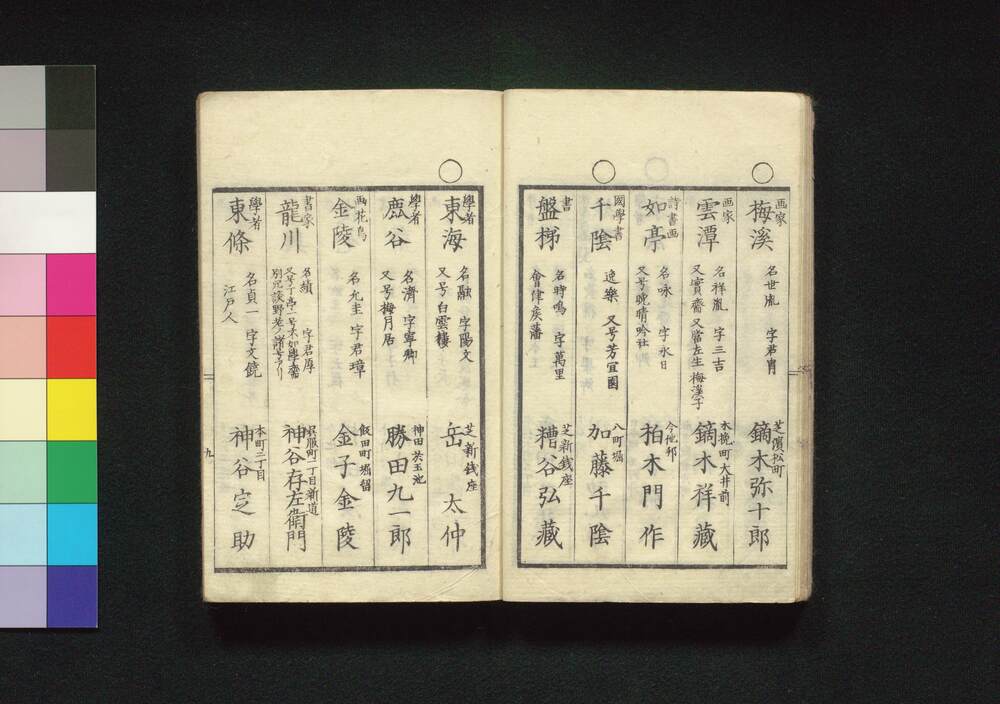 ○
画家
梅溪
名世胤 字君冑
芝濱松町
鏑木弥十郎
画家
雲潭
名祥胤 字三吉
又實齋 又當左生 梅溪子
木挽町大井前
鏑木祥藏
○
詩書画
如亭
名咏 字永日
又号晩晴吟社
今他邦
柏木門作
○
國學書
千陰
逸樂 又号芳宜園
八町堀
加藤千陰
書
盤梯
名時鳴 字萬里
會津矦藩
芝新銭座
糟谷弘藏
○
學者
東海
名融 字陽文
又号白雲樓
芝新銭座
岳 太仲
學者
鹿谷
名濟 字寧卿
又号梅月居
神田於玉池
勝田九一郎
画花鳥
金陵
名允圭 字君璋
飯田町堀留
金子金陵
書家
龍川
名績 字君厚
呉服町一丁目新道
神谷存左衛門
學者
東條
名貞一 字文
江戸人
本町二丁目
神谷定助
九